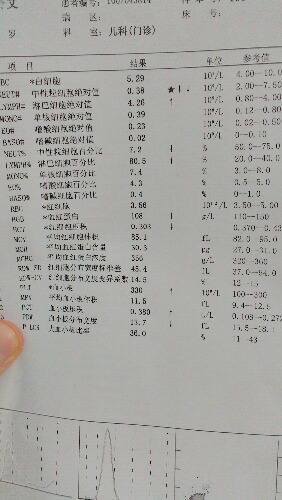 文
患者编号: 1907043614
病 区:
床 号:
科 室: 儿科(门诊)
项 目 结果 单位 参考值
*白细胞 5.29 10^9/L 4.00--10.0
NEUT# 中性粒细胞绝对值 0.38 ★↓↓ 10^9/L 2.00--7.50
LYMPH# 淋巴细胞绝对值 4.26 ↑ 10^9/L 0.80--4.00
MONO# 单核细胞绝对值 0.39 10^9/L 0.12--0.80
EO# 嗜酸细胞绝对值 0.23 10^9/L
BASO# 嗜碱细胞绝对值 0.02 10^9/L 0--0.10
NEUT% 中性粒细胞百分比 7.2 ↓ % 50.0--75.0
LYMPH% 淋巴细胞百分比 80.5 ↑ % 20.0--40.0
MONO% 单核细胞百分比 7.4 % 3.0--8.0
EO% 嗜酸细胞百分比 4.3 % 0.5--5.0
BASO% 嗜碱细胞百分比 0.4 % 0--1.0
RBC *红细胞 3.56 10^12/L 3.50--5.00
*血红蛋白 108 ↓ g/L 110--150
HCT *红细胞压积 0.303 ↓
MCV 平均红细胞体积 85.1 fL 82.0--95.0
MCH 平均血红蛋白含量 30.3 pg 27.0--31.0
MCHC 平均血红蛋白浓度 356 g/L 320--360
红细胞分布宽度标准差 45.4 fL 37.0--54.0
红细胞分布宽度变异系数 14.5 % 12--15
PLT *血小板 330 ↑ 10^9/L 100--300
MPV 平均血小板体积 11.5 fL 9.4--12.5
PCT 血小板压积 0.380 ↑
PDW 血小板分布宽度 13.7 ↓ fL 15.5--18.1
P-LCR 大血小板比率 36.0 %